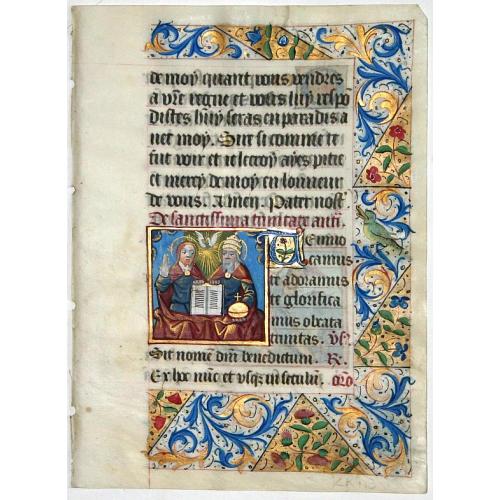 de moy quant vous vendres
a vr̃e regne et vous luy respo
distes huy seras en paradis a
uec moy. Sire si comme ce
fut voir et ie le croy ayes pitie
et mercy de moy en lonneur
de vous. Amen. Pater nost̃.
De sanctissima trinitate antī.
Te inuo
camus
te adoramus
te glorifica
mus o beata
trinitas. v̄s.
Sit nomē dn̄i benedictum. R.
Ex hoc nūc et vsq̄ in seculū. orō